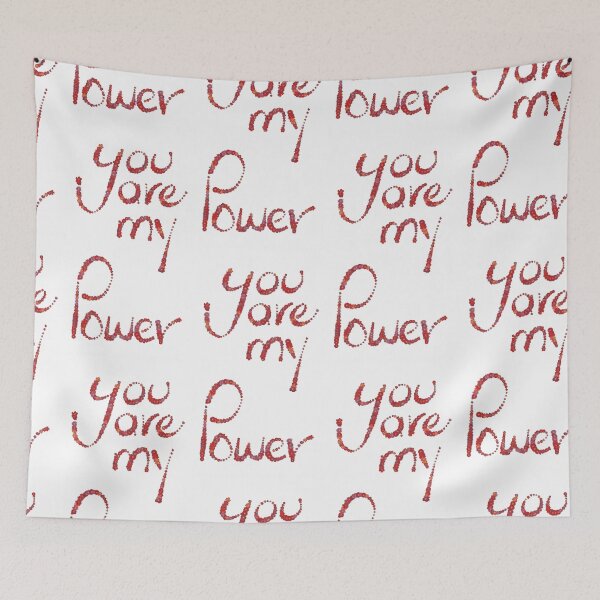 Power
are
my
Power
are
you
are
my
Power
you
are
my
Power
Power
you
are
my
Power
you
are
my
you
are
my
Power
you
are
my
Power
you
you